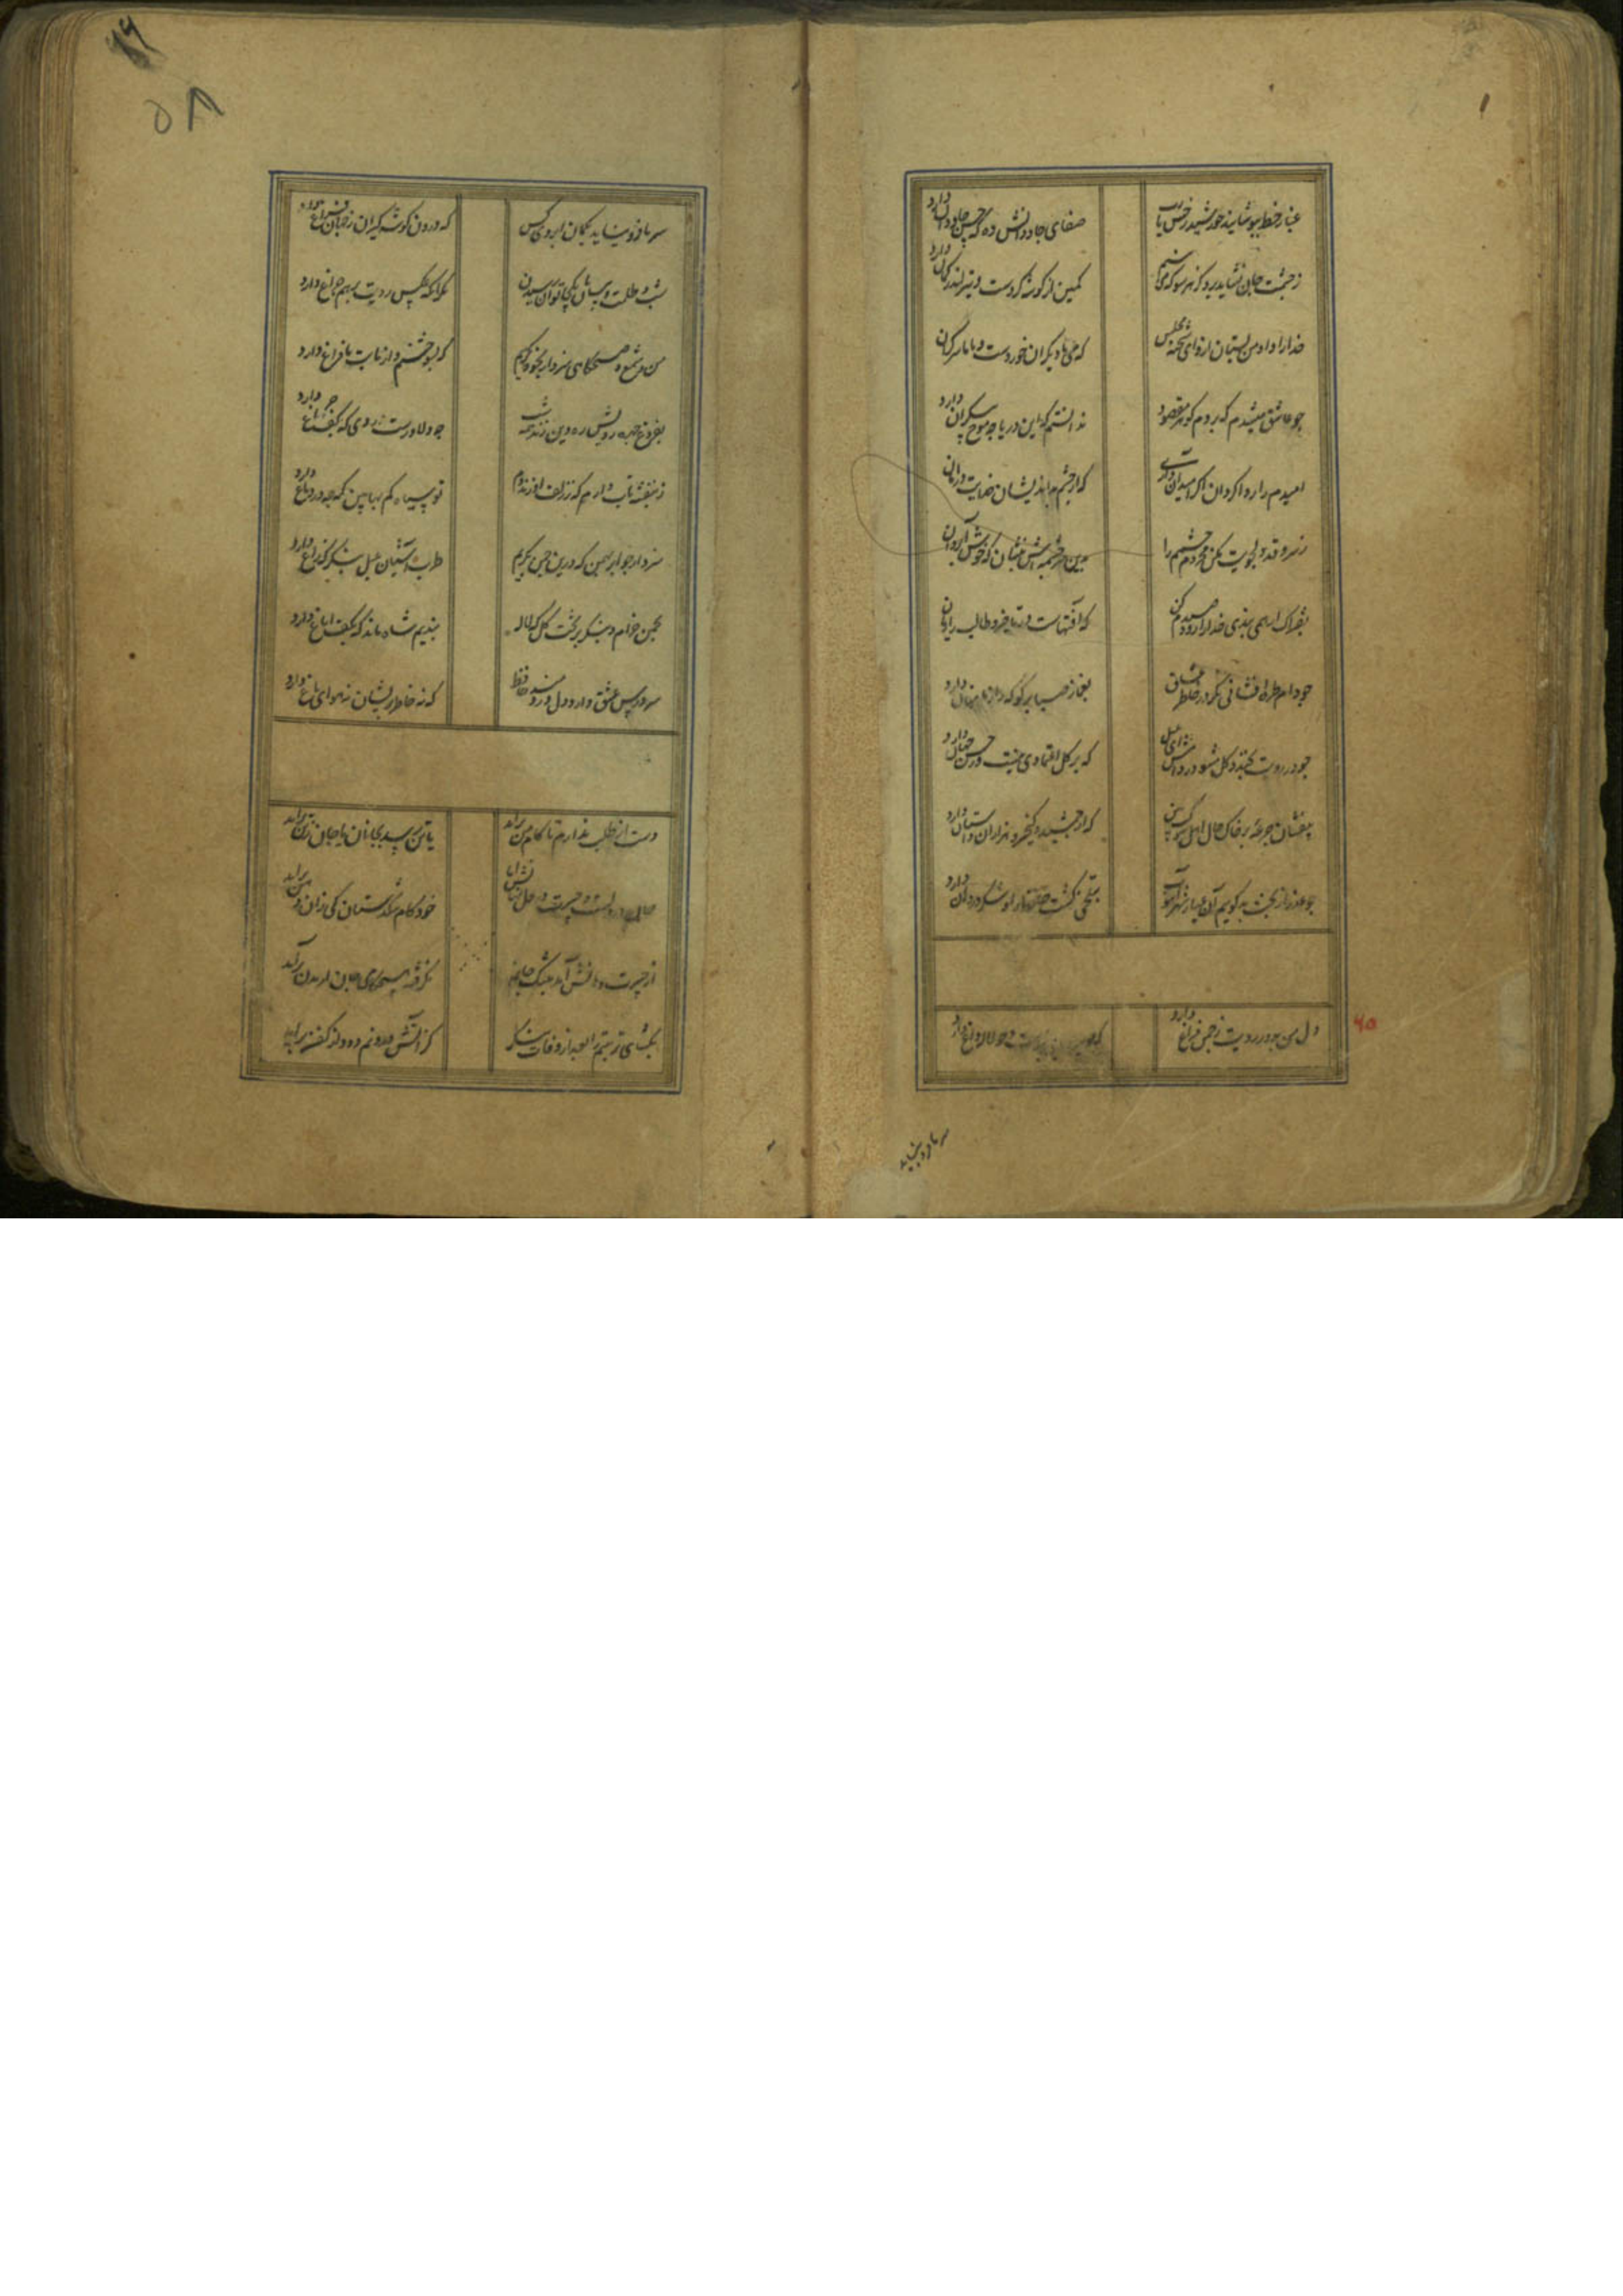 غبار خط بپوشانید خورشید رخش یارب صفای جاودانش ده که حسن جاودان دارد
ز چشمت جان نشاید برد کز هر سو که می بینم کمین از گوشه کردست و تیر اندر کمان دارد
خدا را داد من بستان ازو ای شحنه مجلس که می با دیگران خوردست و با ما سر گران دارد
چو عاشق میشدم گفتم که بردم گوهر مقصود ندانستم که این دریا چه موج بیکران دارد
که از چشم بد اندیشان خدایت در امان دارد
ز سرو قد دلجویت مکن محروم چشمم را بدین سرچشمه اش بنشان که خوش آب روان دارد
بفتراک ار همی بندی خدا را زود صیدم کن که آفتهاست در تاخیر و طالب را زیان دارد
چو دام طره افشاند ز گرد خاطر عشاق بغماز صبا گوید که راز ما نهان دارد
چو در رویت بخندد گل مشو در دامش ای بلبل که بر گل اعتمادی نیست ور حسن جهان دارد
بیفشان جرعه بر خاک و حال اهل شوکت بین که از جمشید و کیخسرو هزاران داستان دارد
چه عذر از بخت بد گویم که آن عیار شهر آشوب بتلخی کشت حافظ را و شکر در دهان دارد
دل من بدور رویت ز چمن فراغ دارد که چو سرو پای بندست و چو لاله داغ دارد
۶۵
سر ما فرو نیاید بکمان ابروی کس که درون گوشه گیران ز جهان فراغ دارد
شب و ظلمت و بیابان بکجا توان رسیدن مگر آنکه عکس رویت برهم چراغ دارد
من و شمع صبحگاهی سزد ار بخود بگرییم که بسوختیم و از ما بت ما فراغ دارد
بفروغ چهره زلفش ره دین زند همه شب چه دلاورست دزدی که بکف چراغ دارد
ز بنفشه تاب دارم که ز زلف او زند دم تو سیاه کم بها بین که چه در دماغ دارد
سزد ار چو ابر بهمن که درین چمن بگریم طرب آشیان بلبل بنگر که زاغ دارد
بچمن خرام و بنگر بر تخت گل که لاله بندیم شاه ماند که بکف ایاغ دارد
سر درس عشق دارد دل دردمند حافظ که نه خاطر پریشان نه هوای باغ دارد
دست از طلب ندارم تا کام من برآید یا تن رسد بجانان یا جان ز تن برآید
خود کام تنگدستان کی زان دهن برآید
از حسرت دهانش آمد بتنگ جانم نگرفته هیچ کامی جان از بدن برآید
بگشای تربتم را بعد از وفات بنگر کز آتش درونم دود از کفن برآید
سر ما فرو نیاید
۵۸